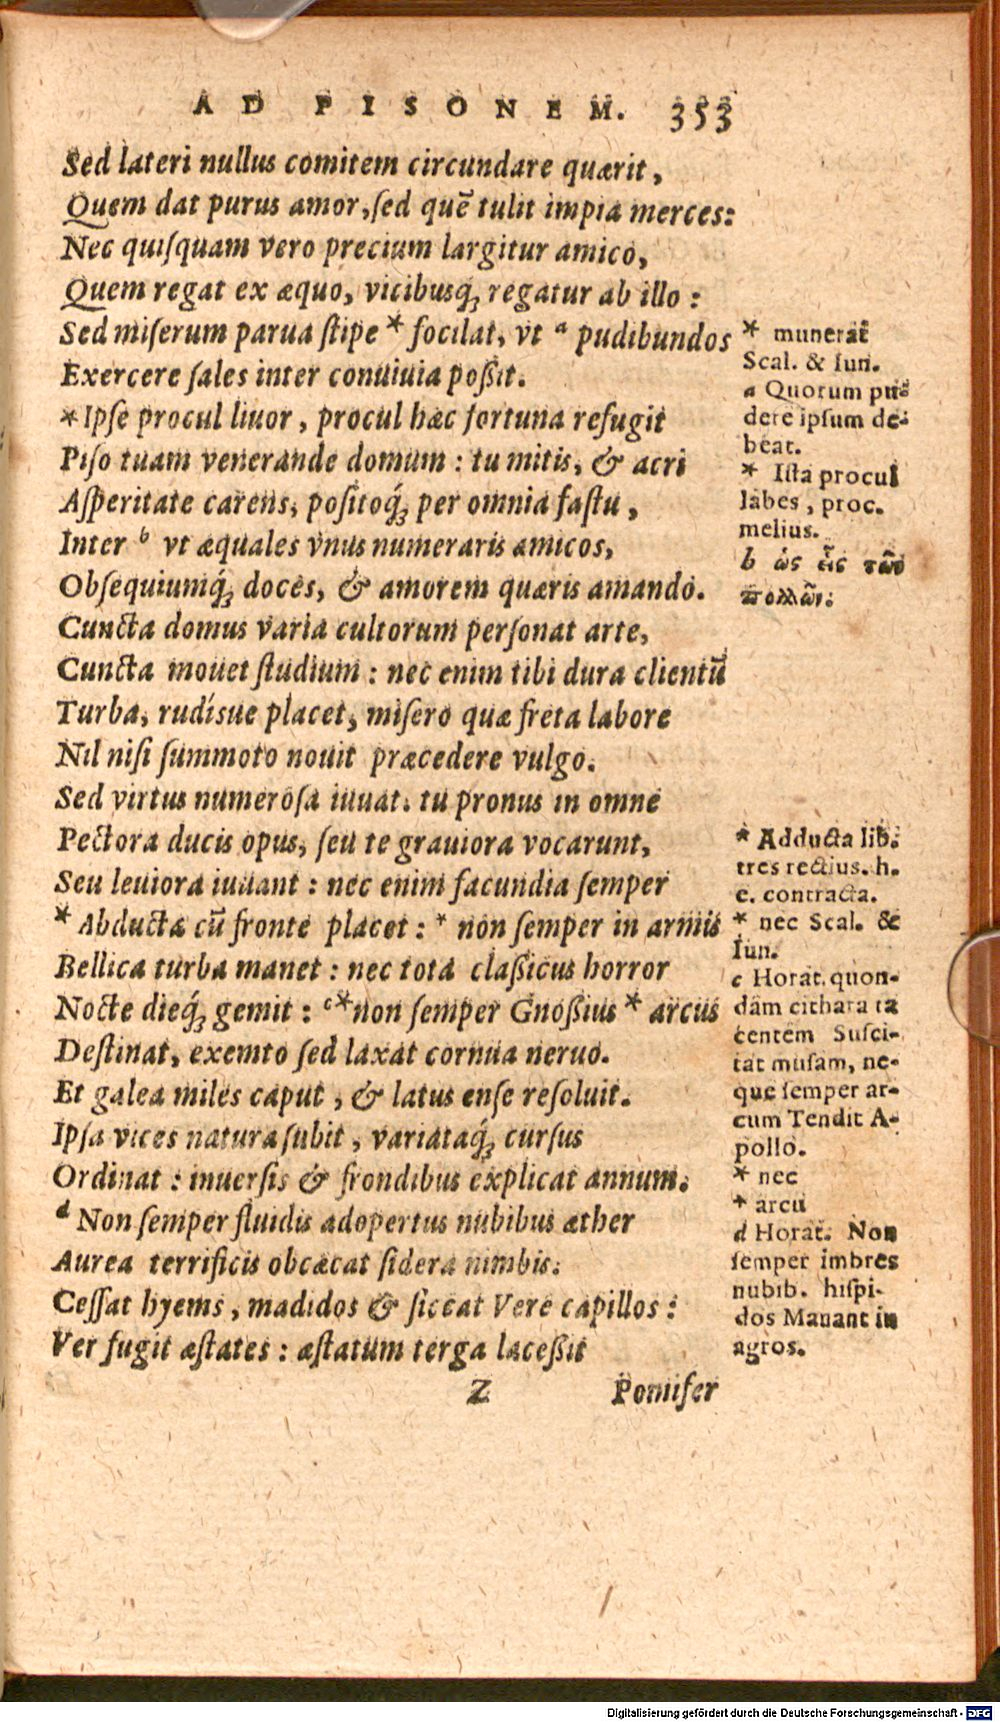 AD PISONEM. 353
Sed lateri nullus comitem circundare quærit,
Quem dat purus amor, sed quē tulit impia merces:
Nec quisquam vero precium largitur amico,
Quem regat ex æquo, vicibusq́; regatur ab illo:
Sed miserum parua stipe * focilat, vt a pudibundos
Exercere sales inter conuiuia possit.
* Ipse procul liuor, procul hæc fortuna refugit
Piso tuam venerande domum: tu mitis, & acri
Asperitate carens, positoq́; per omnia fastu,
Inter b vt æquales vnus numeraris amicos,
Obsequiumq́; doces, & amorem quæris amando.
Cuncta domus varia cultorum personat arte,
Cuncta mouet studium: nec enim tibi dura clientū
Turba, rudísue placet, misero quæ freta labore
Nil nisi summoto nouit præcedere vulgo.
Sed virtus numerosa iuuat. tu pronus in omne
Pectora ducis opus, seu te grauiora vocarunt,
Seu leuiora iuuant: nec enim facundia semper
* Abducta cū fronte placet: * non semper in armis
Bellica turba manet: nec tota classicus horror
Nocte dieq́; gemit: c * non semper Gnossius * arcus
Destinat, exemto sed laxat cornua neruo.
Et galea miles caput, & latus ense resoluit.
Ipsa vices natura subit, variataq́; cursus
Ordinat: inuersis & frondibus explicat annum.
d Non semper fluidis adopertus nubibus æther
Aurea terrificis obcæcat sidera nimbis.
Cessat hyems, madidos & siccat Vere capillos:
Ver fugit æstates: æstatum terga lacessit
Z Pomifer
* munerat
Scal. & Iun.
a Quorum pu-
dere ipsum de-
beat.
* Ista procul
labes, proc.
melius.
b ὡς εἷς τῶν
πολλῶν.
* Adducta lib.
tres rectius. h.
e. contracta.
* nec Scal. &
Iun.
c Horat. quon-
dam cithara ta
centem Susci-
tat musam, ne-
que semper ar-
cum Tendit A-
pollo.
* nec
* arcu
d Horat. Non
semper imbres
nubib. hispi-
dos Manant in
agros.
Digitalisierung gefördert durch die Deutsche Forschungsgemeinschaft - DFG